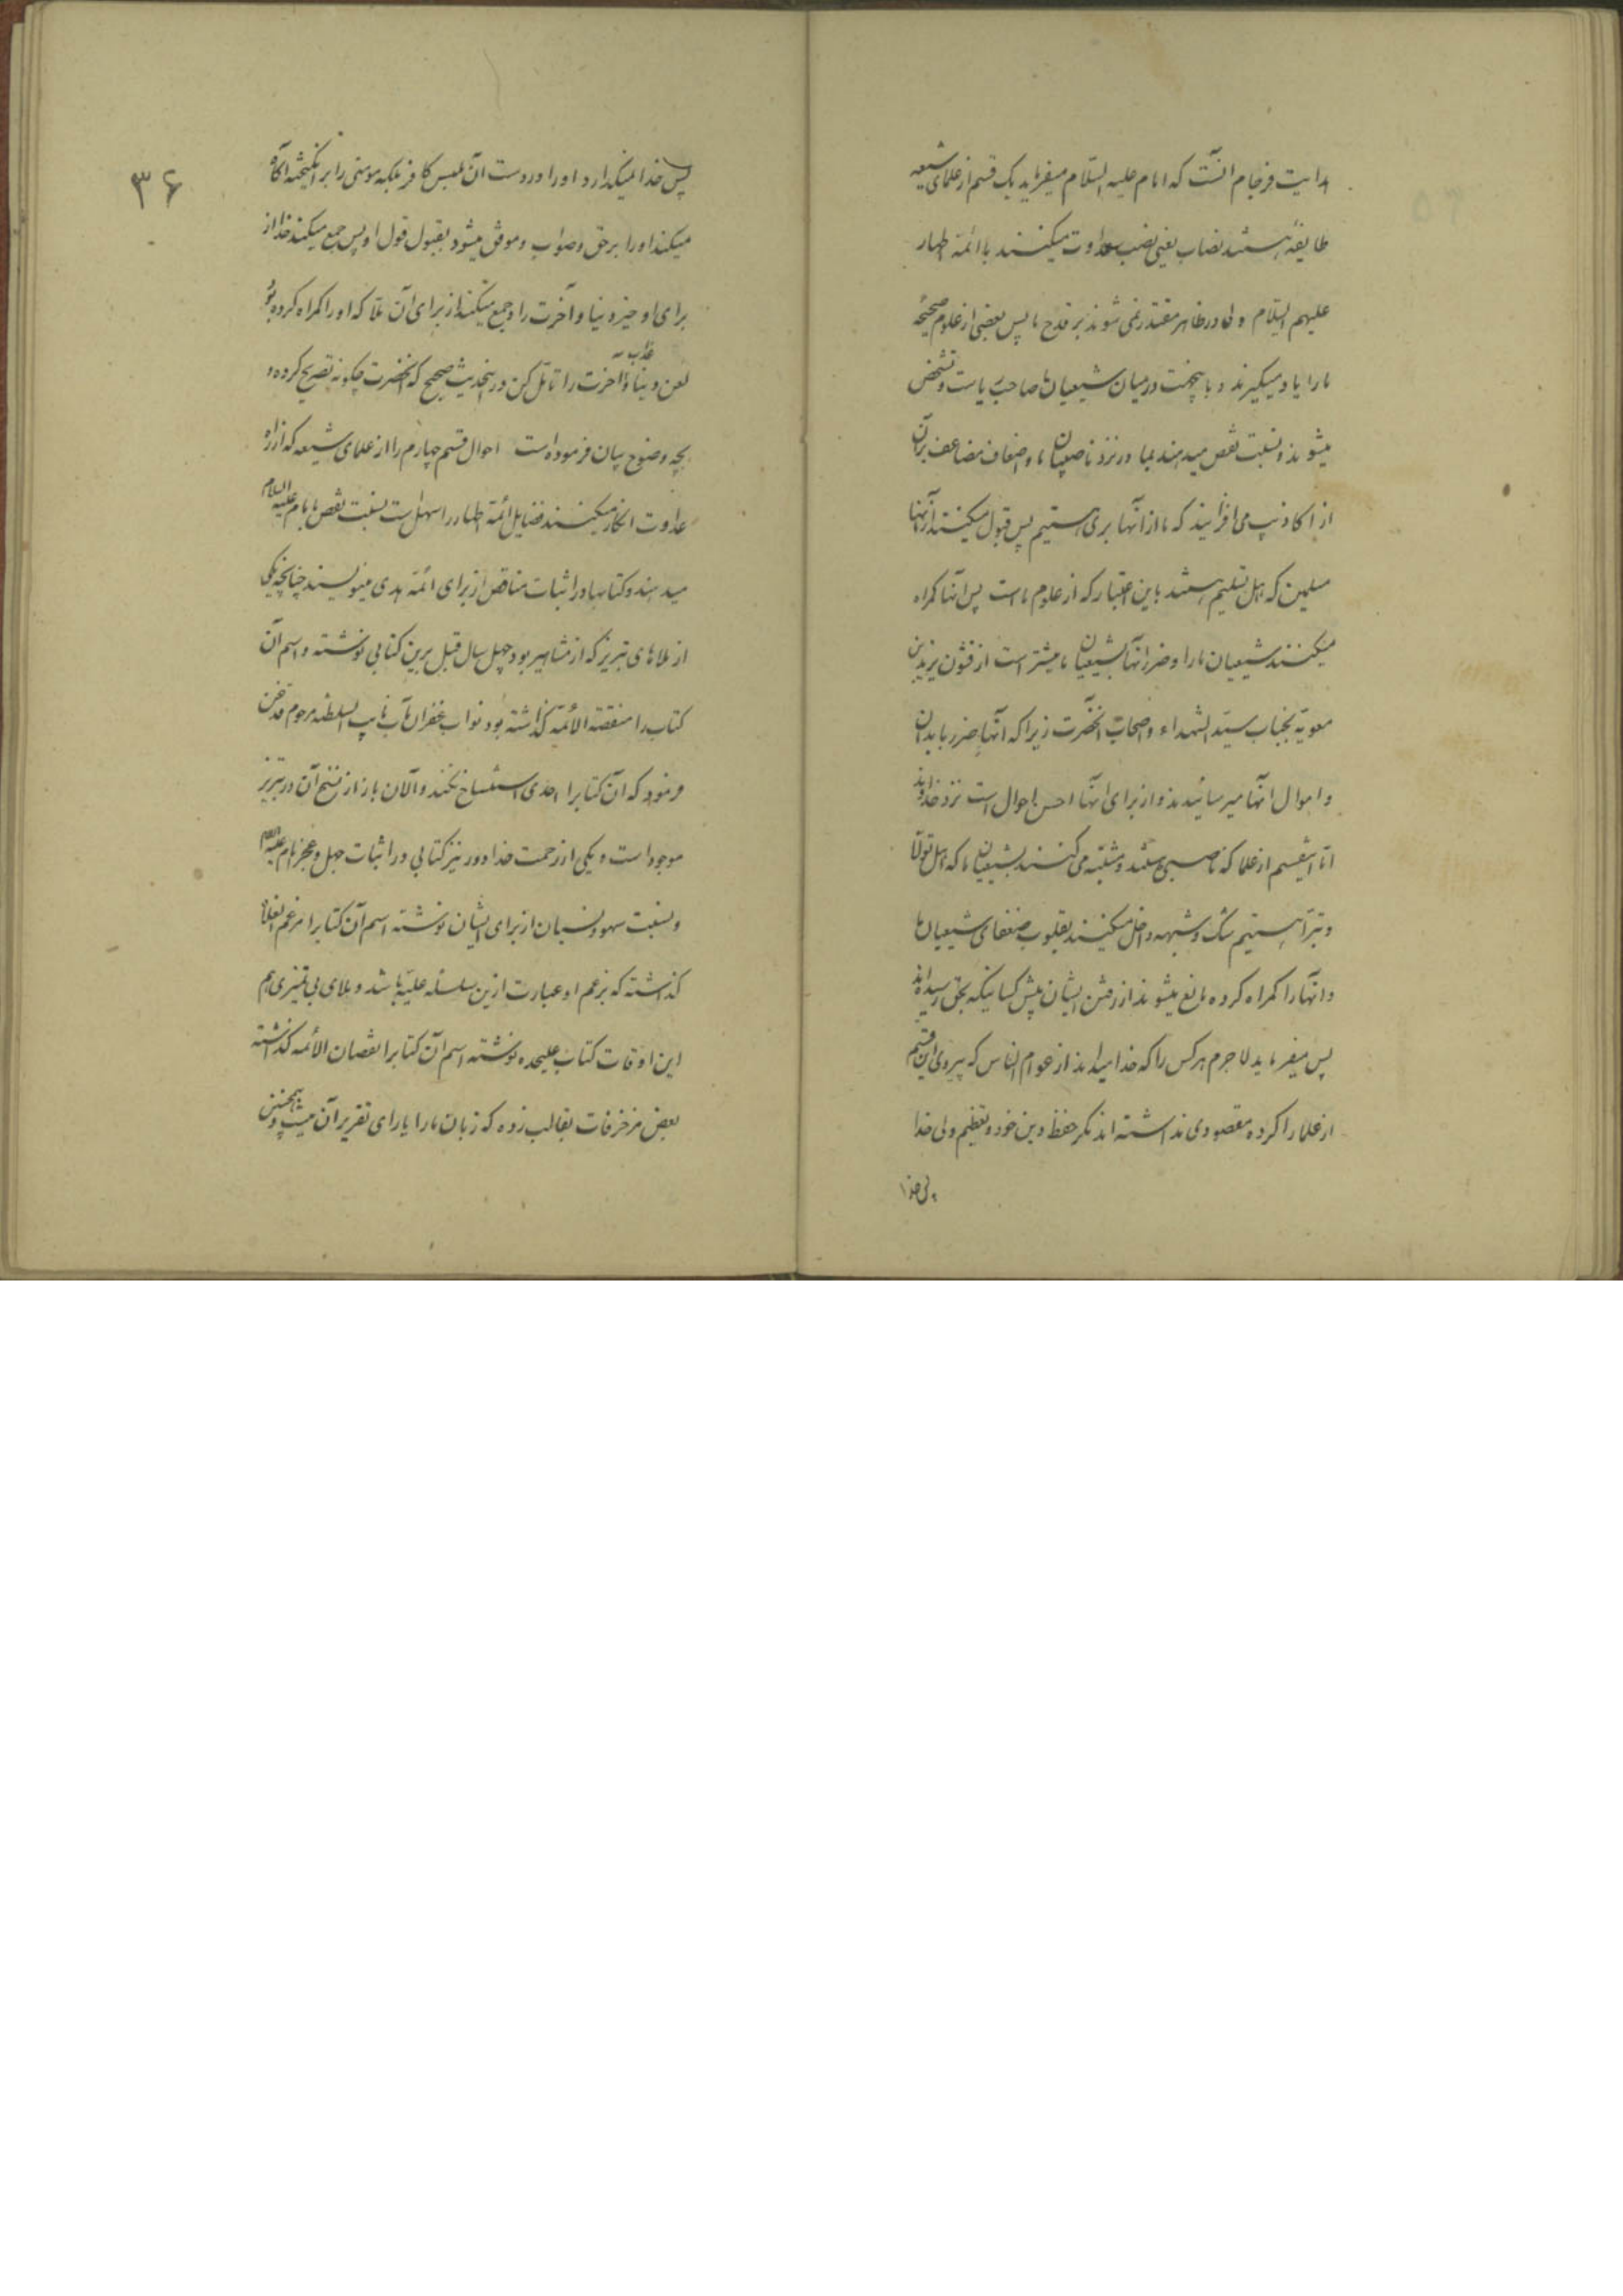 هدایت فرجام آنست که امام علیه السّلام میفرماید یک قسم از علمای شیعه
طایفهٔ هستند نصاب یعنی نصب عداوت میکنند با ائمّه اطهار
علیهم السّلام ولی در ظاهر مقتدر نمی شوند بر قدح ما پس بعضی از علوم صحیحهٔ
ما را یاد میگیرند و باینجهت در میان شیعیان ما صاحب ریاست و تشخص
میشوند و نسبت نقص میدهند بما در نزد ناصبیان ما و اضعاف مضاعف بر آن
از اکاذیب می افزایند که ما از آنها بری هستیم پس قبول میکنند از آنها
مسلمین که اهل تسلیم هستند باین اعتبار که از علوم ماست پس آنها گمراه
میکنند شیعیان ما را و ضرر آنها بشیعیان ما بیشتر است از قشون یزید بن
معویه بجناب سیّد الشهداء و اصحاب آنحضرت زیرا که آنها ضرر بابدان
و اموال آنها میرسانیدند و از برای آنها احسن احوال است نزد خداوند
امّا اینقسم از علما که ناصبی هستند و مشتبه می کنند بشیعیان ما که اهل تولّا
و تبرّا هستیم شک و شبهه داخل میکنند بقلوب ضعفای شیعیان ما
و آنها را گمراه کرده مانع میشوند از رفتن ایشان پیش کسانیکه بحق رسیده اند
پس میفرماید لاجرم هرکس را که خدا میداند از عوام الناس که پیروی این قسم
از علما را کرده مقصودی نداشته اند مگر حفظ دین خود و تعظیم ولی خدا
ولی خدا
۳۶
پس خدا نمیگذارد او را در دست آن ملبس کافر بلکه مومنی را برانگیخته آگاه
میکند او را بر حق و صواب و موفق میشود بقبول قول او پس جمع میکند خدا از
برای او خیر دنیا و آخرت را و جمع میکند از برای آن ملّا که او را گمراه کرده بود
لعن دنیا و عذاب آخرت را تامّل کن در اینحدیث صحیح که آنحضرت چگونه تصریح کرده و
بچه وضوح بیان فرموده است احوال قسم چهارم را از علمای شیعه که از راه
عداوت انکار میکنند فضایل ائمّه اطهار را سهل است نسبت نقص بامام علیه السلام
میدهند و کتابها در اثبات مناقص از برای ائمّه هدی مینویسند چنانچه یکی
از ملاهای تبریز که از مشاهیر بود چهل سال قبل برین کتابی نوشته و اسم آن
کتاب را منقصة الائمّه گذاشته بود نواب غفران مآب نایب السلطنه مرحوم قدغن
فرمود که آن کتابرا احدی استنساخ نکند و الان باز از نسخ آن در تبریز
موجود است و یکی از رحمت خدا دور نیز کتابی در اثبات جهل و عجز امام علیه السلام
و نسبت سهو و نسیان از برای ایشان نوشته اسم آن کتابرا مرغم الغلاة
گذاشته که بزعم او عبارت ازین سلسله علیّه باشد و ملای بی تمیزی هم
این اوقات کتاب علیحده نوشته اسم آن کتابرا نقصان الائمه گذاشته
بعض مزخرفات بقالب زده که زبان ما را یارای تقریر آن نیست و همچنین